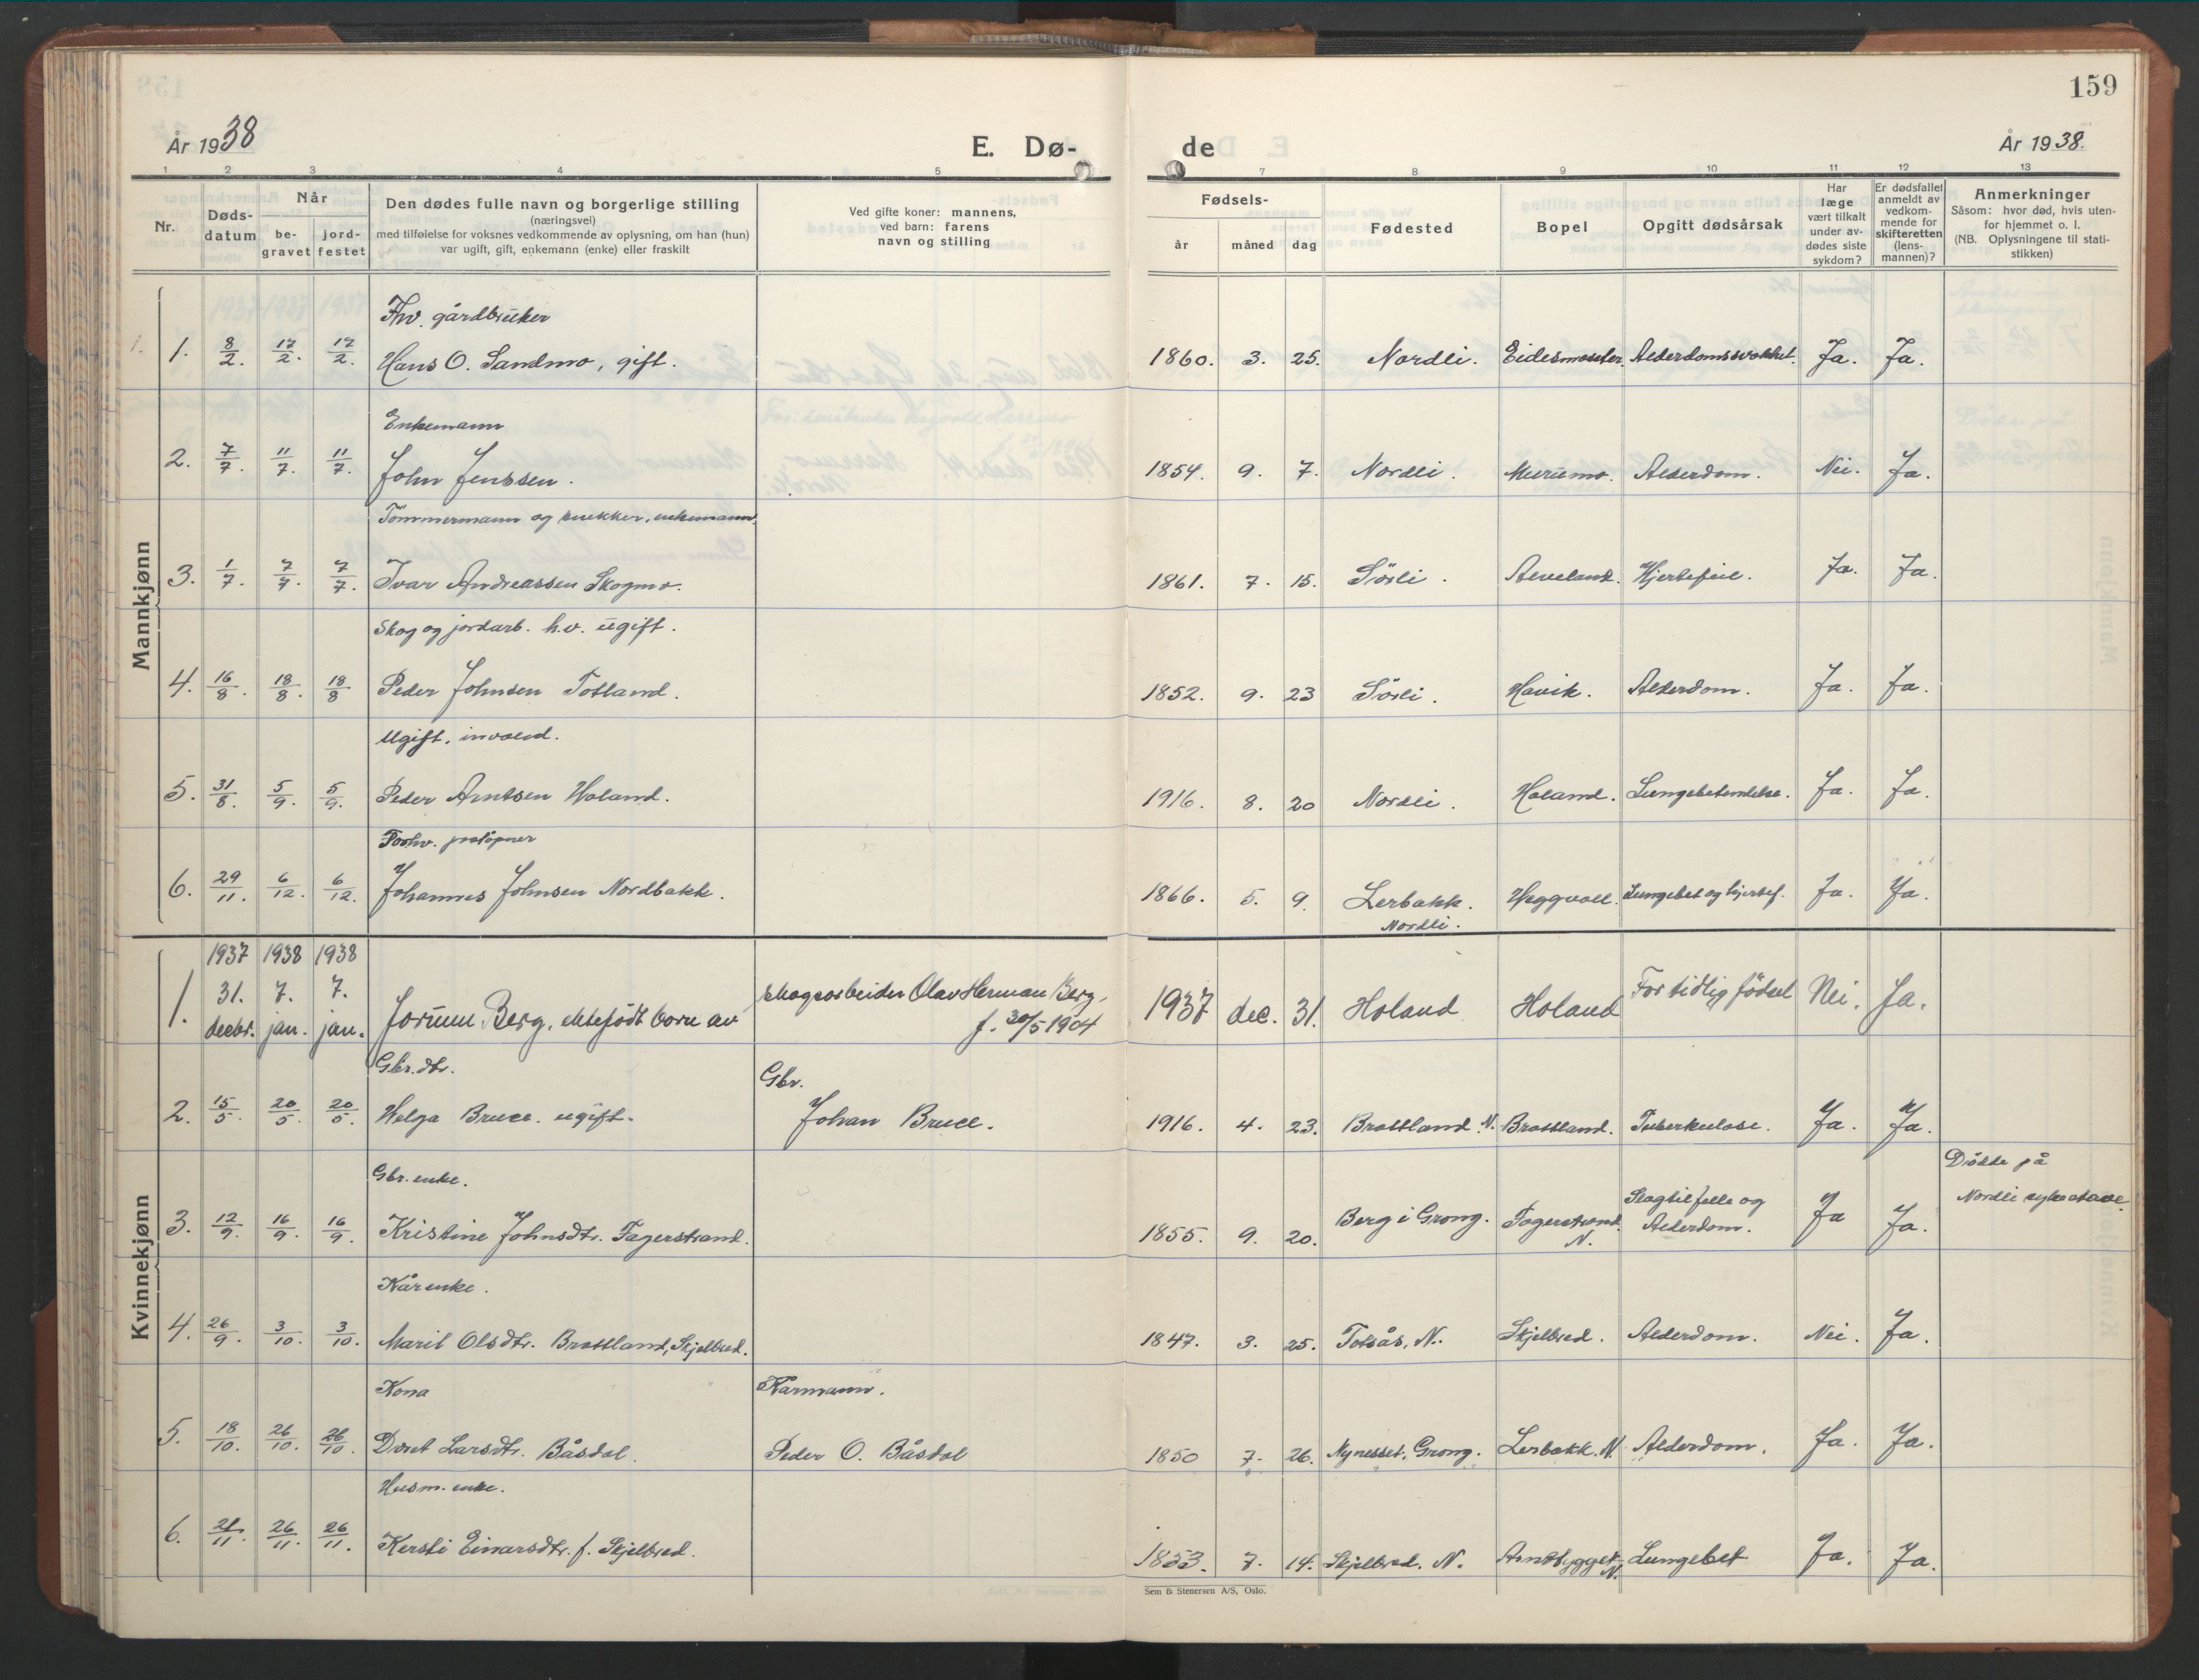 159
År 1938
E. Dø-
de
År 1938.
1 2 3 4 5 7 8 9 10 11 12 13
Nr.
Døds-
datum
Når
be-
gravet
jord-
festet
Den dødes fulle navn og borgerlige stilling
(næringsvei)
med tilføielse for voksnes vedkommende av oplysning, om han (hun)
var ugift, gift, enkemann (enke) eller fraskilt
Ved gifte koner: mannens,
ved barn: farens
navn og stilling
Fødsels-
år måned dag
Fødested
Bopel
Opgitt dødsårsak
Har
læge
vært tilkalt
under av-
dødes siste
sykdom?
Er dødsfallet
anmeldt av
vedkom-
mende for
skifteretten
(lens-
mannen)?
Anmerkninger
Såsom: hvor død, hvis uten-
for hjemmet o. l.
(NB. Oplysningene til stati-
stikken)
Mannkjønn
Fhv. gårdbruker
1. 8/2. 12/2. 12/2. Hans O. Sandmo, gift. 1860. 3. 25. Nordli. Eidesmoseter. Alderdomssvakhet. Ja. Ja.
Enkemann
2. 7/7. 11/7. 11/7. John Jenssen. 1854. 9. 7. Nordli. Murumo. Alderdom. Nei. Ja.
Tömmermann og snekker, enkemann.
3. 1/7. 7/7. 7/7. Ivar Andreassen Skogmo. 1861. 7. 15. Sörli. Aaveland. Hjertefeil. Ja. Ja.
Skog og jordarb. h.v. ugift.
4. 16/8. 18/8. 18/8 Peder Johnsen Totland. 1852. 9. 23 Sörli. Havik. Alderdom. Ja. Ja.
Ugift, invalid.
5. 31/8. 5/9. 5/9. Peder Arntsen Holand. 1916. 8. 20 Nordli. Holand. Lungebetendelse. Ja. Ja.
Forhv. postöpner
6. 29/11. 6/12. 6/12. Johannes Johnsen Nordbakk. 1866. 5. 9. Lerbakk. Heggvoll. Lungebet og hjertef. Ja. Ja.
Nordli.
Kvinnekjønn
1937 1938 1938
31. 7. 7. skogsarbeider Olav Herman Berg,
1. decbr. jan. jan. Jorunn Berg, ektefödt born av f. 30/5 1904 1937 dec. 31. Holand Holand For tidlig födsel Nei. Ja.
Gbr.dtr. Gbr.
2. 15/5. 20/5. 20/5. Helga Bruce. ugift. Johan Bruce. 1916. 4. 23. Brattland N. Brattland. Tuberkulose. Ja. Ja.
Gbr. enke. Slagtilfelle og Dödde på
3. 12/9. 16/9. 16/9. Kristine Johnsdtr. Fagerstrand. 1855. 9. 20. Berg i Grong. Fagerstrand N. Alderdom. Ja Ja. Nordli sykestove.
Kårenke.
4. 26/9. 3/10. 3/10. Marit Olsdtr. Brattland, Skjelbred. 1847. 3. 25. Totsås, N. Skjelbred. Alderdom. Nei. Ja.
Kona Kårmann.
5. 18/10. 26/10. 26/10. Doret Larsdtr. Båsdal. Peder O. Båsdal 1850 7. 26. Nynesset, Grong. Lerbakk. N. Alderdom. Ja. Ja.
Husm. enke.
6. 21/11. 26/11. 26/11. Kersti Einarsdtr. f. Skjelbred. 1853. 7. 14. Skjelbred. N. Arntbygget N. Lungebet Ja. Ja.
Sem & Stenersen A/S, Oslo.